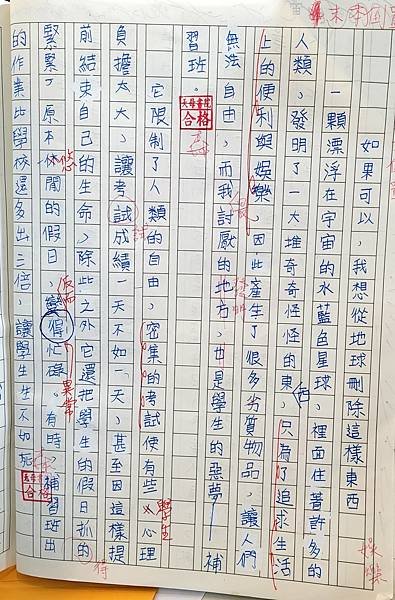 如果可以，我想從地球刪除這樣東西
一顆漂浮在宇宙的水藍色星球，裡面住著許多的
人類，發明了一大堆奇奇怪怪的東西，只為了追求生活
上的便利與娛樂，因此產生了很多劣質物品，讓人們
無法自由，而我討厭的地方，也是學生的惡夢──補
習班。
天母書院
合格
它限制了人類的自由，密集的考試使有些學生心理
負擔太大，讓考試成績一天不如一天，甚至因這樣提
前結束自己的生命，除此之外它還把學生的假日抓的
得
緊緊，原本休閒的假日，變得忙碌。有時，補習班出
悠
反而
異常
的作業比學校還多出三倍，讓學生生不如死
合格
試